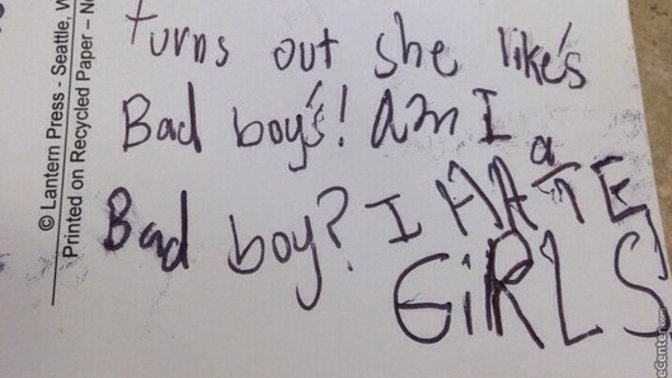 turns out she like's
Bad boy's! Am I
a
Bad boy? I HATE
GiRLS
© Lantern Press - Seattle, W
Printed on Recycled Paper –